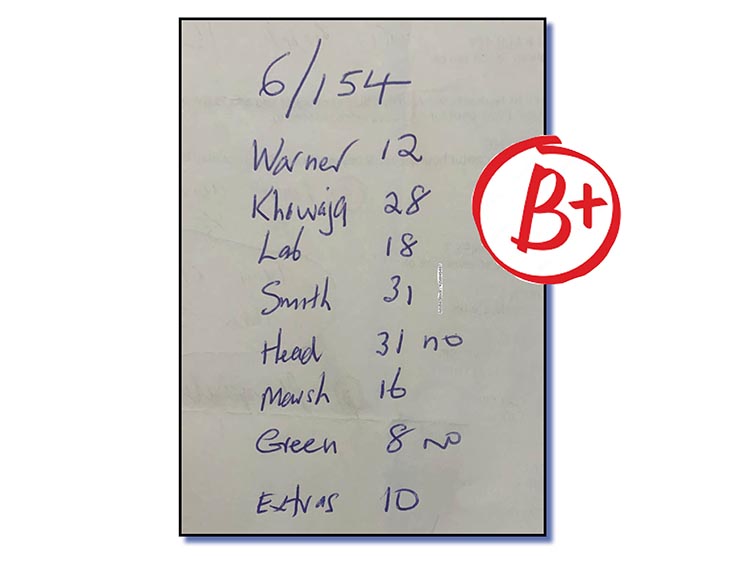 6/154
Warner 12
Khowaja 28
Lab 18
Smith 31
Head 31 no
Marsh 16
Green 8 no
Extras 10
B+